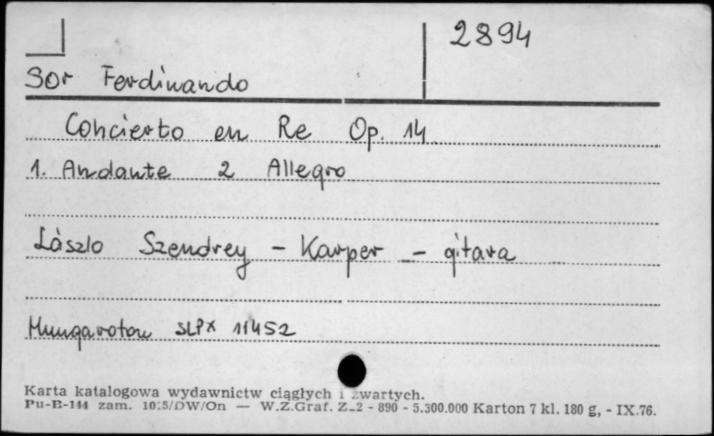 2894
Sor Ferdinando
Concierto en Re Op. 14
1. Andante 2 Allegro
László Szendrey - Karper - gitara
Hungaroton SLPX 11452
Karta katalogowa wydawnictw ciągłych i zwartych.
Pu-B-144 zam. /DW/On — W.Z.Graf. Z-2 - 890 - 5.300.000 Karton 7 kl. 180 g, - IX.76.